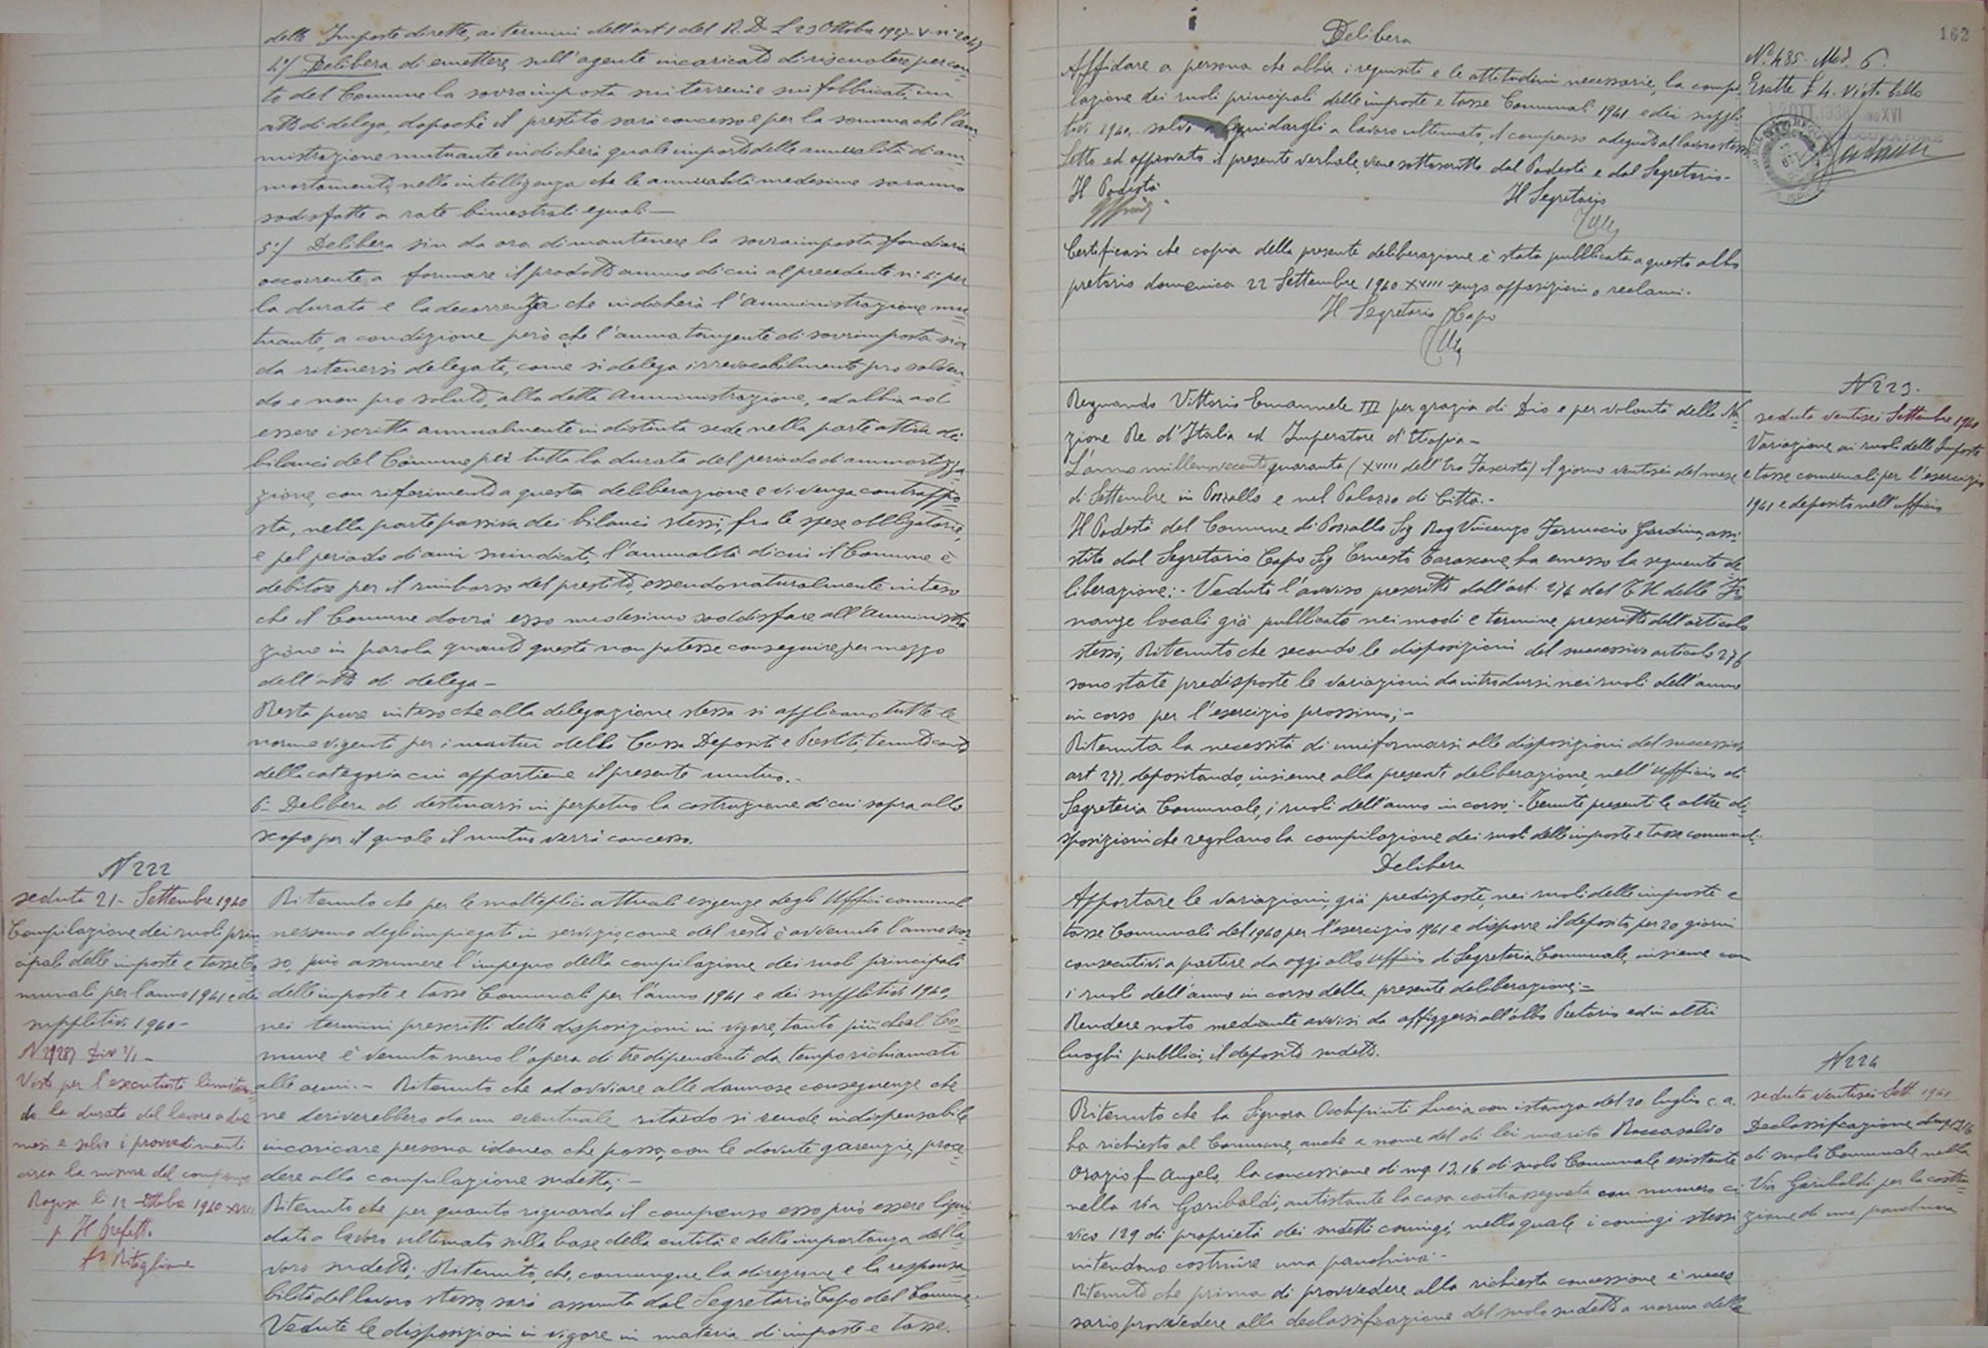 delle Imposte dirette, ai termini dell'art 1 del R.D.L 23 Ottobre 1927 V. n° 2047
4°/ Delibera di emettere, sull'agente incaricato di riscuotere per con=
to del Comune la sovraimposta sui terreni e sui fabbricati, un
atto di delega, dopochè il prestito sarà concesso e per la somma che l'Am
ministrazione mutuante indicherà quale importo delle annualità di am=
mortamento, nella intelligenza che le annualità medesime saranno
sodisfatte a rate bimestrali eguali —
5°/ Delibera sin da ora di mantenere la sovraimposta fondiaria
occorrente a formare il prodotto annuo di cui al precedente n° 4° per
la durata e la decorrenza che indicherà l'Amministrazione mu=
tuante, a condizione però che l'annua tangente di sovrimposta sia
da ritenersi delegata, come si delega irrevocabilmente pro solven=
do e non pro soluto, alla detta Amministrazione, ed abbia ad
essere iscritta annualmente in distinta sede nella parte attiva dei
bilanci del Comune per tutta la durata del periodo di ammortizza
zione, con riferimento a questa deliberazione e vi venga contrappo=
sta, nella parte passiva dei bilanci stessi, fra le spese obbligatorie,
e pel periodo di anni suindicati, l'annualità di cui il Comune è
debitore per il rimborso del prestito, essendo naturalmente inteso
che il Comune dovrà esso medesimo soddisfare all'Amministra
zione in parola quanto questa non potesse conseguire per mezzo
dell'atto di delega —
Resta pure inteso che alla delegazione stessa si applicano tutte le
norme vigenti per i mutui della Cassa Depositi e Prestiti, tenuto conto
della categoria cui appartiene il presente mutuo. -
6° Delibera di destinarsi in perpetuo la costruzione di cui sopra allo
scopo per il quale il mutuo verrà concesso.
N 222
seduta 21 - Settembre 1940
Compilazione dei ruoli prin=
cipali delle imposte e tasse Co
munali per l'anno 1941 e dei
suppletivi 1940 -
Div 2/1 -
Visto per l'esecutività limitan=
do la durata del lavoro a due
mesi e salvo i provvedimenti
circa la misura del compenso
Ragusa li 12 Ottobre 1940 XVIII
p. Il Prefetto
Ritenuto che per le molteplici attuali esigenze degli Uffici comunali
nessuno degli impiegati in servizio, come del resto è avvenuto l'anno scor
so, può assumere l'impegno della compilazione dei ruoli principali
delle imposte e tasse Comunali per l'anno 1941 e dei suppletivi 1940,
nei termini prescritti dalle disposizioni in vigore, tanto più che al Co=
mune è venuto meno l'opera di tre dipendenti da tempo richiamati
alle armi. - Ritenuto che ad ovviare alle dannose conseguenze che
ne deriverebbero da un eventuale ritardo si rende indispensabile
incaricare persona idonea che possa, con le dovute garenzie, proce=
dere alla compilazione sudetta; -
Ritenuto che per quanto riguarda il compenso esso può essere liqui
dato a lavoro ultimato sulla base della entità e della importanza del la=
voro sudetto; Ritenuto, che, comunque, la direzione e la responsa
bilità del lavoro stesso, sarà assunta dal Segretario Capo del Comune,
Vedute le disposizioni in vigore in materia di imposte e tasse.
162
Delibera
Affidare a persona che abbia i requisiti e le attitudini necessarie, la compi
lazione dei ruoli principali delle imposte e tasse Comunali 1941 e dei supple
tivi 1940, salvo a liquidargli a lavoro ultimato, il compenso adeguato al lavoro stesso
Letto ed approvato il presente verbale, viene sottoscritto dal Podestà e dal Segretario -
Il Podestà
Il Segretario
Certificasi che copia della presente deliberazione è stata pubblicata a questo albo
pretorio domenica 22 Settembre 1940 XVIII senza opposizioni o reclami.
Il Segretario Capo
N° 485. Mod. 6.
Esatte £ 4. visto bollo
N 223.
seduta ventisei Settembre 1940
Variazione ai ruoli delle Imposte
e tasse comunali per l'esercizio
1941 e deposito nell'ufficio
Regnando Vittorio Emanuele III per grazia di Dio e per volontà della Na
zione Re d'Italia ed Imperatore d'Etiopia -
L'anno millenovecentoquaranta (XVIII dell'Era Fascista) il giorno ventisei del mese
di Settembre in Pozzallo e nel Palazzo di Città. -
Il Podestà del Comune di Pozzallo Sig Rag Vincenzo Ferruccio Giardina, assi
stito dal Segretario Capo Sig Ernesto Tarascone, ha emesso la seguente de
liberazione: - Veduto l'avviso prescritto dall'art. 274 del T.U. delle Fi
nanze locali già pubblicato nei modi e termine prescritti dall'articolo
stesso; Ritenuto che secondo le disposizioni del successivo articolo 276
sono state predisposte le variazioni da introdursi nei ruoli dell'anno
in corso per l'esercizio prossimo; -
Ritenuta la necessità di uniformarsi alle disposizioni del successivo
art 277, depositando, insieme alla presente deliberazione, nell'Ufficio di
Segreteria Comunale, i ruoli dell'anno in corso; - Tenute presenti le altre di=
sposizioni che regolano la compilazione dei ruoli delle imposte e tasse comunali: -
Delibera
Apportare le variazioni, già predisposte, nei ruoli delle imposte e
tasse Comunali del 1940 per l'esercizio 1941 e disporre il deposito per 20 giorni
consecutivi a partire da oggi allo Ufficio di Segreteria Comunale, insieme con
i ruoli dell'anno in corso della presente deliberazione; =
Rendere noto mediante avvisi da affiggersi all'albo Pretorio ed in altri
luoghi pubblici, il deposito sudetto.
N 224
seduta ventisei Sett. 1940
Declassificazione di mq 12,16
di suolo Comunale nella
Via Garibaldi per la costru=
zione di una panchina
Ritenuto che la Signora Occhipinti Lucia con istanza del 20 luglio c.a.
ha richiesto al Comune, anche a nome del di lei marito Roccasalvo
Orazio fu Angelo, la concessione di mq 12.16 di suolo Comunale esistente
nella via Garibaldi, antistante la casa contrassegnata con numero ci
vico 129 di proprietà dei sudetti coniugi, nella quale i coniugi stessi
intendono costruire una panchina -
Ritenuto che prima di provvedere alla richiesta concessione è neces
sario provvedere alla declassificazione del suolo sudetto a norma della